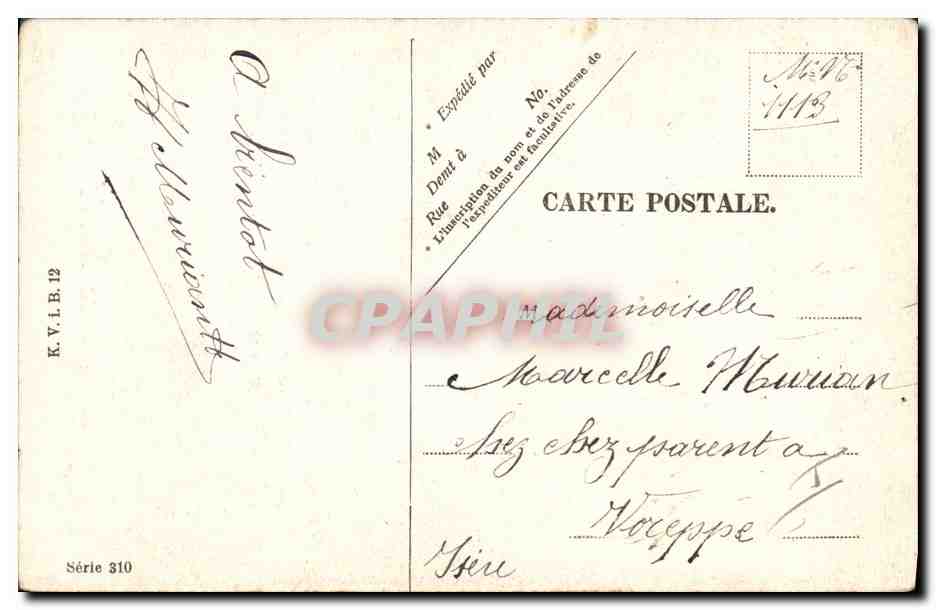 A bientot
K. V. i. B. 12
Série 310
* Expédié par
M
Demt à
Rue No.
* L'inscription du nom et de l'adresse de
l'expéditeur est facultative.
1113
CARTE POSTALE.
CPAPHIL
Mademoiselle
Marcelle Murian
chez chez parent a
Voreppe
Isère